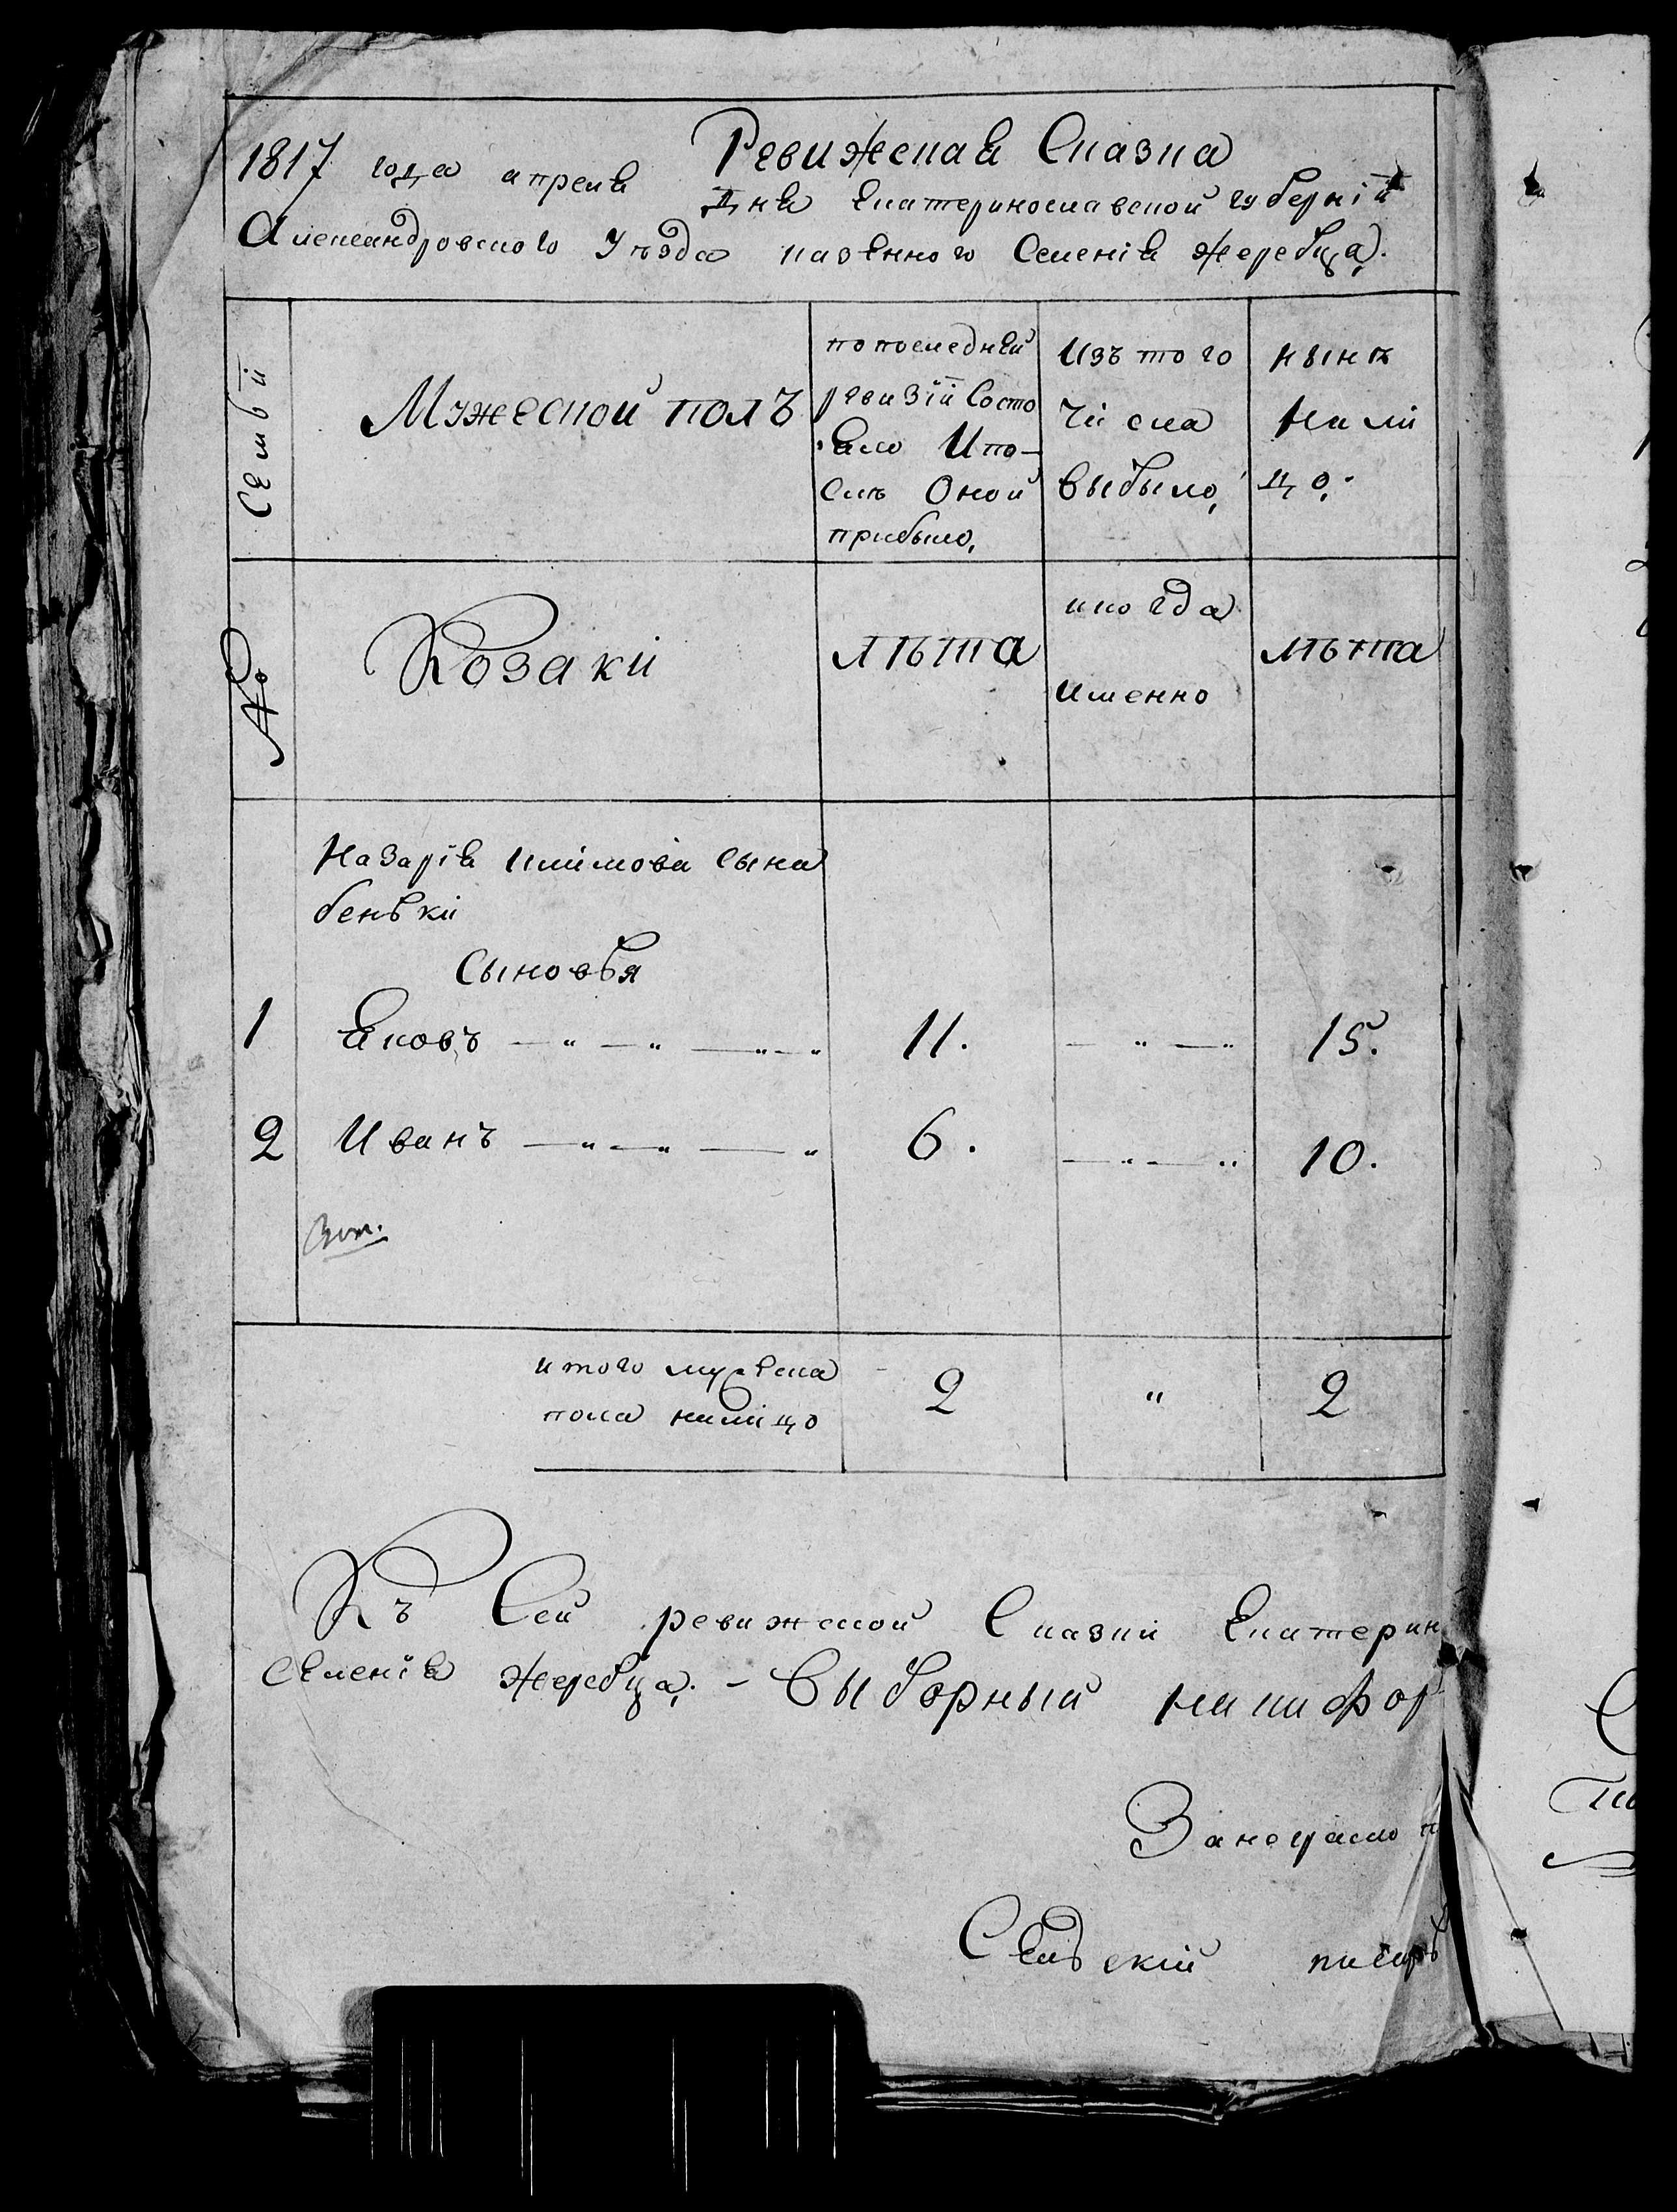 Ревижская Сказка
1817 года апреля дня Екатеринославской губерній
Александровского Уѣзда казенного Селенія жеребца.
Семьй
№
Мужеской полъ
по последней
ревизіи Состо
яло И по-
слѣ Оной
прибыло,
Изъ того
числа
выбыло,
нынѣ
на ли
цо.
Козаки
лѣта
когда
именно
лѣта
Назарія климова Сына
бенькі
Сыновья
1 Яковъ 11. 15.
2 Иванъ 6. 10.
итого мужеска
пола налицо 2 " 2
Къ Сей ревижской Сказки Екатерин
Селенія жеребца. - Выборный никифор
Сельскій писарь